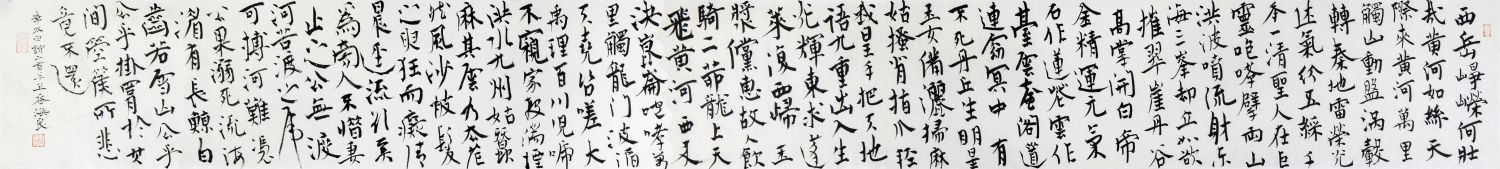 西岳崢嶸何壯
哉黃河如絲天
際來黃河萬里
觸山動盤渦轂
轉秦地雷榮光
休氣紛五綵千
年一清聖人在巨
靈咆哮擘兩山
洪波噴流射東
海三峯却立如欲
摧翠崖丹谷
高掌開白帝
金精運元氣
石作蓮花雲作
臺雲臺閣道
連窈冥中有
不死丹丘生明星
玉女備灑掃麻
姑搔背指爪輕
我皇手把天地
語九重出入生
光輝東求蓬
萊復西歸玉
漿儻惠故人飲
騎二茅龍上天
飛黃河西來
決崑崙咆哮萬
里觸龍門波滔
天堯咨嗟大
禹理百川兒啼
不窺家殺湍堙
洪水九州始蠶
麻其害乃去茫
然風沙被髮
之叟狂而癡清
晨逕流欲奚
為旁人不惜妻
止之公無渡
河苦渡之虎
可搏河難馮
公果溺死流海
湄有長鯨白
齒若雪山公乎
公乎掛罥於其
間箜篌所悲
竟不還
太白詩二首辛丑春海